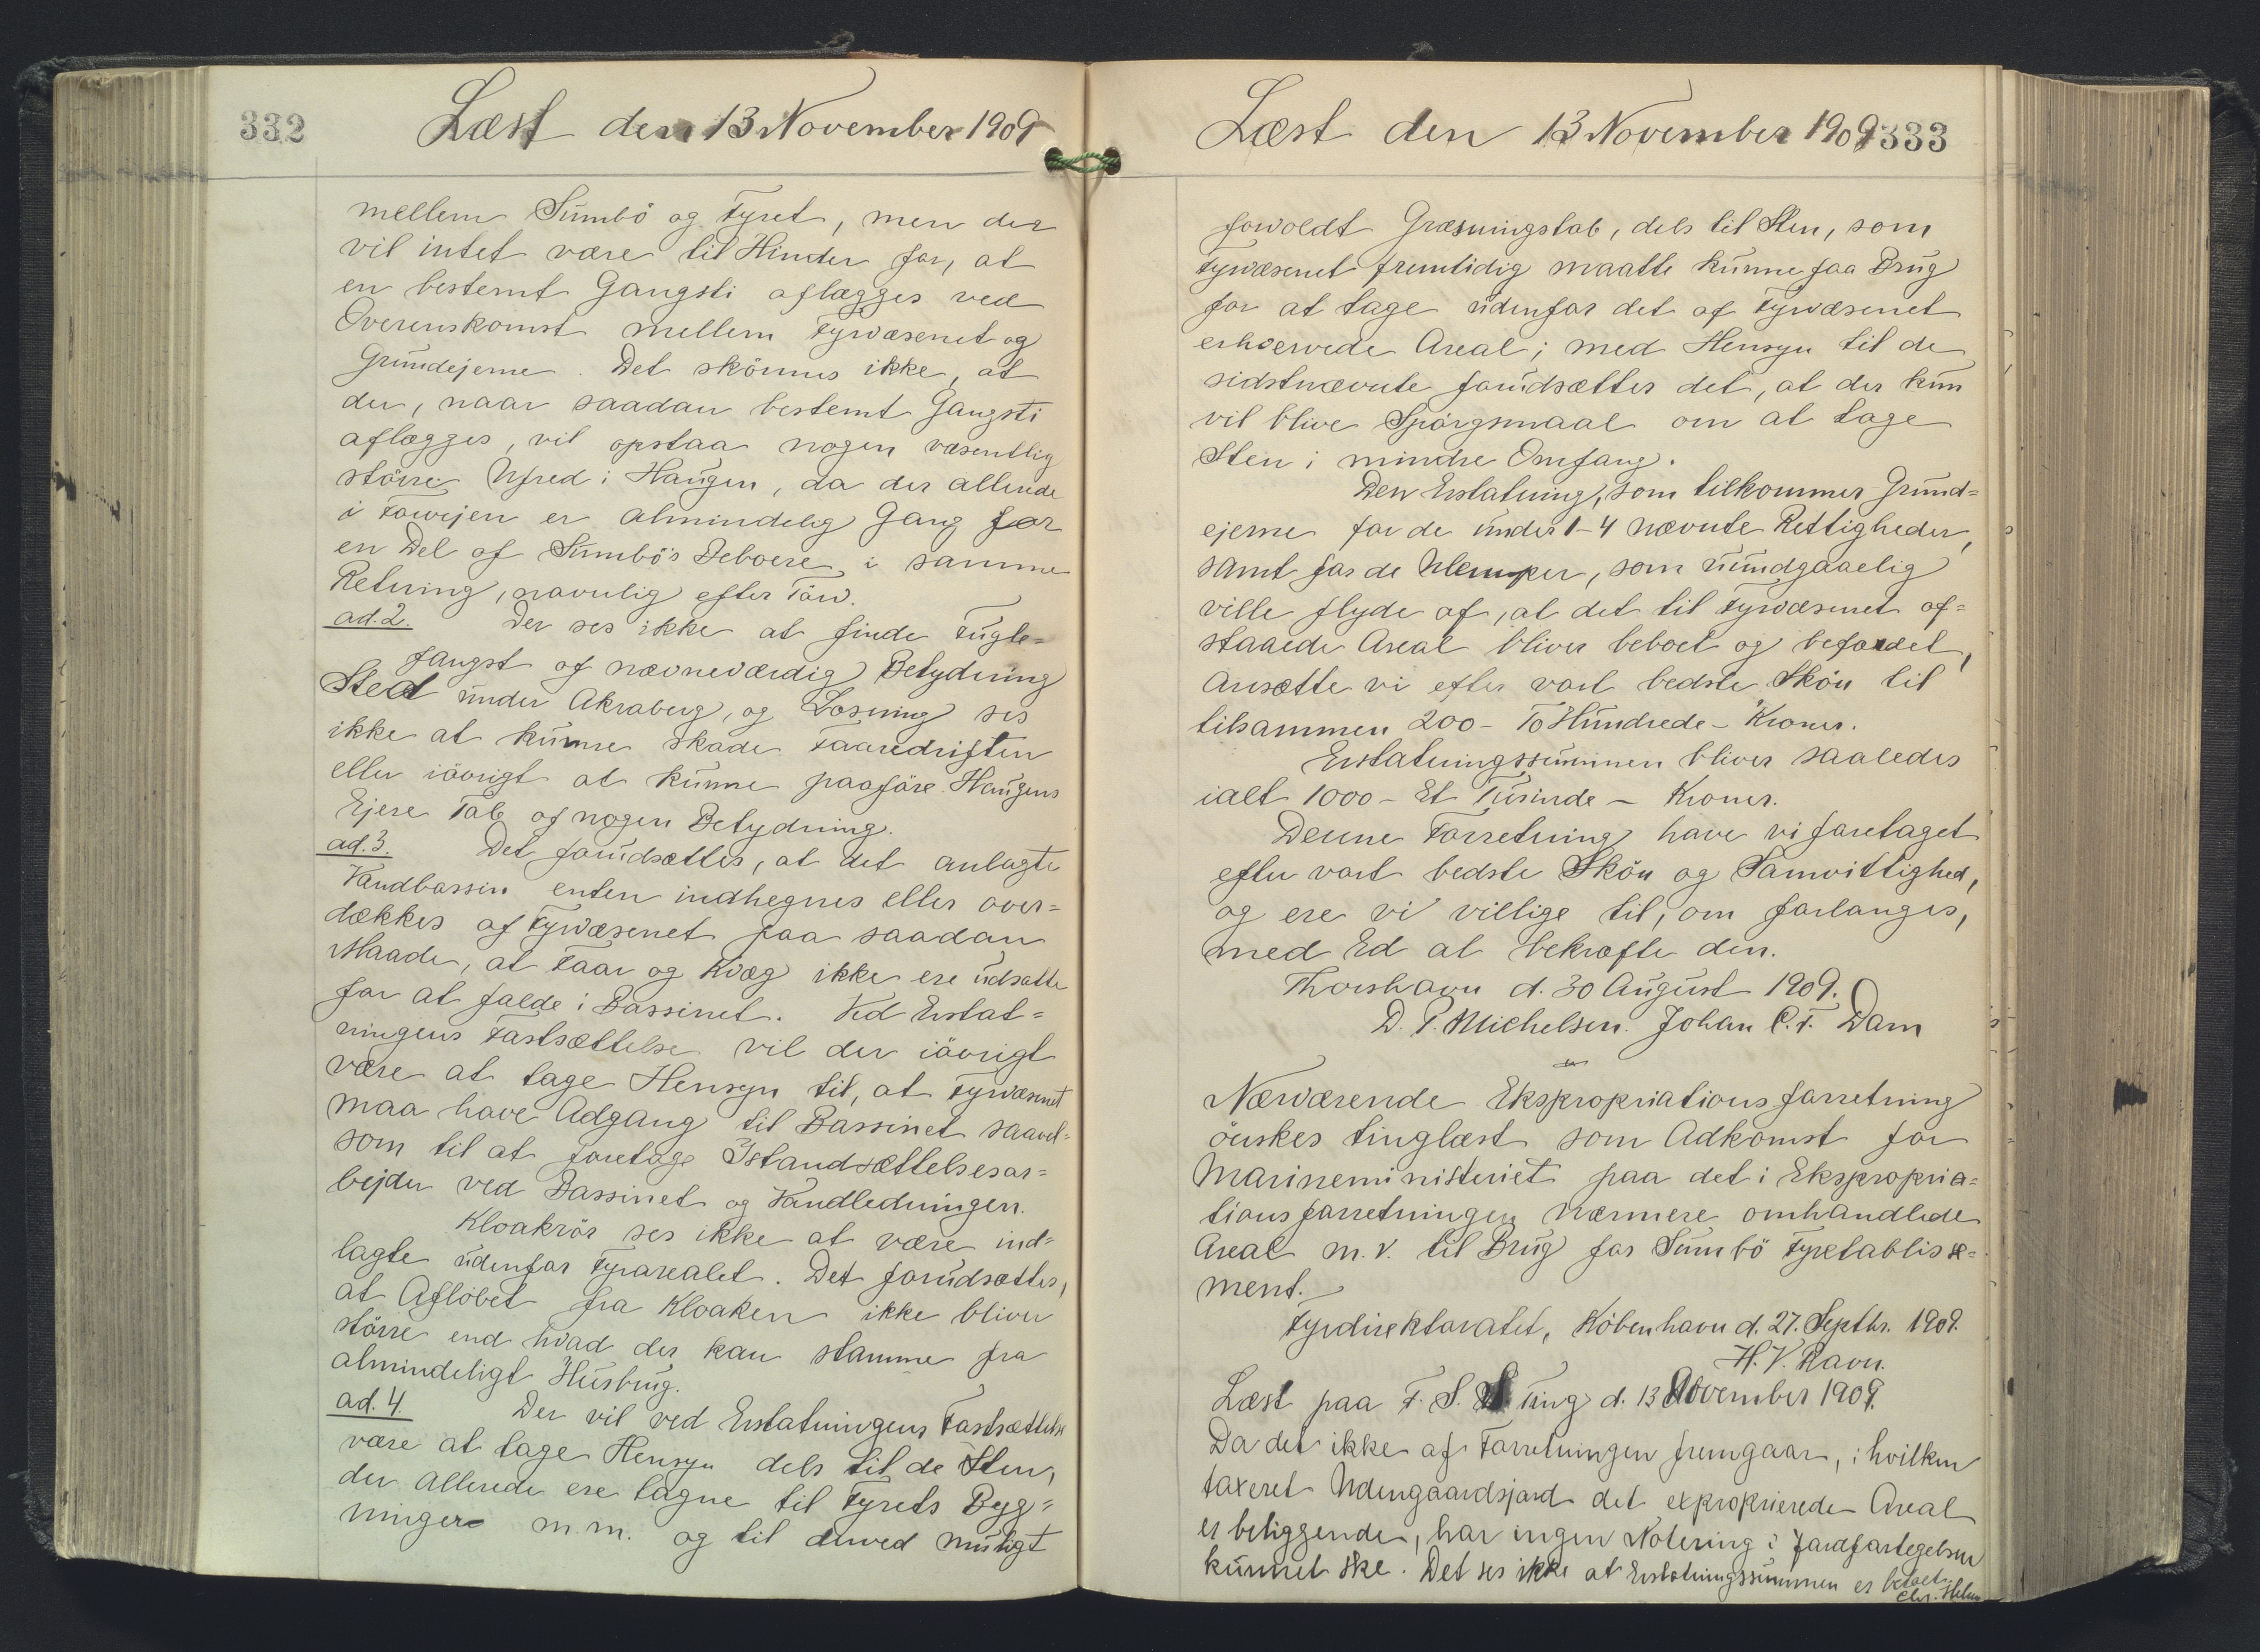 332
Læst den 13 November 1909
mellem Sumbö og Fyret, men der
vil intet være til Hinder for, at
en bestemt Gangsti aflægges ved
Overenskomst mellem Fyrvæsenet og
Grundejerne. Det skönnes ikke, at
der, naar saadan bestemt Gangsti
aflægges, vil opstaa nogen væsentlig
större Ufred i Haugen, da der allerede
i Forvejen er almindelig Gang for
en Del af Sumbö's Beboere i samme
Retning, navnlig efter Törv.
ad. 2. Der ses ikke at finde Fugle=
fangst af nævneværdig Betydning
Sted under Akraberg, og Losning ses
ikke at kunne skade Faaredriften
eller iövrigt at kunne paaföre Haugens
Ejere Tab af nogen Betydning.
ad. 3. Det forudsættes, at det anlagte
Vandbassin enten indhegnes eller over=
dækkes af Fyrvæsenet paa saadan
Maade, at Faar og Kvæg ikke ere udsatte
for at falde i Bassinet. Ved Erstat=
ningens Fastsættelse vil der iövrigt
være at tage Hensyn til, at Fyrvæsenet
maa have Adgang til Bassinet saavel=
som til at foretage Istandsættelsesar=
bejder ved Bassinet og Vandledningen.
Kloakrör ses ikke at være ind=
lagte udenfor Fyrarealet. Det forudsættes,
at Aflöbet fra Kloaken ikke bliver
större end hvad der kan stamme fra
almindeligt Husbrug.
ad. 4. Der vil ved Erstatningens Fastsættelse
være at tage Hensyn dels til de Sten,
der allerede ere tagne til Fyrets Byg=
ninger m.m. og til derved muligt
Læst den 13 November 1909
333
forvoldt Græsningstab, dels til Sten, som
Fyrvæsenet fremtidig maatte kunne faa Brug
for at tage udenfor det af Fyrvæsenet
erhvervede Areal; med Hensyn til de
sidstnævnte forudsættes det, at der kun
vil blive Spörgsmaal om at tage
Sten i mindre Omfang.
Den Erstatning, som tilkommer Grund=
ejerne for de under 1-4 nævnte Rettigheder,
samt for de Ulemper, som uundgaaelig
ville flyde af, at det til Fyrvæsenet af=
staaede Areal bliver beboet og befærdet,
ansætte vi efter vort bedste Skön til
tilsammen 200 - To Hundrede - Kroner.
Erstatningssummen bliver saaledes
ialt 1000 - Et Tusinde - Kroner.
Denne Forretning have vi foretaget
efter vort bedste Skön og Samvittighed,
og ere vi villige til, om forlanges,
med Ed at bekræfte den.
Thorshavn d. 30 August 1909.
D. P. Michelsen. Johan C. F. Dam
Nærværende Ekspropriationsforretning
önskes tinglæst som Adkomst for
Marineministeriet paa det i Ekspropria=
tionsforretningen nærmere omhandlede
Areal m.v. til Brug for Sumbö Fyretablisse=
ment.
Fyrdirektoratet, Köbenhavn d. 27. Septbr. 1909.
H. V. Ravn.
Læst paa F. S. Ting d. 13 November 1909.
Da det ikke af Forretningen fremgaar, i hvilken
taxeret Udengaardsjord det exproprierede Areal
er beliggende, har ingen Notering i Jordfortegelsen
kunnet ske. Det ses ikke at Erstatningssummen er betalt.
Chr.